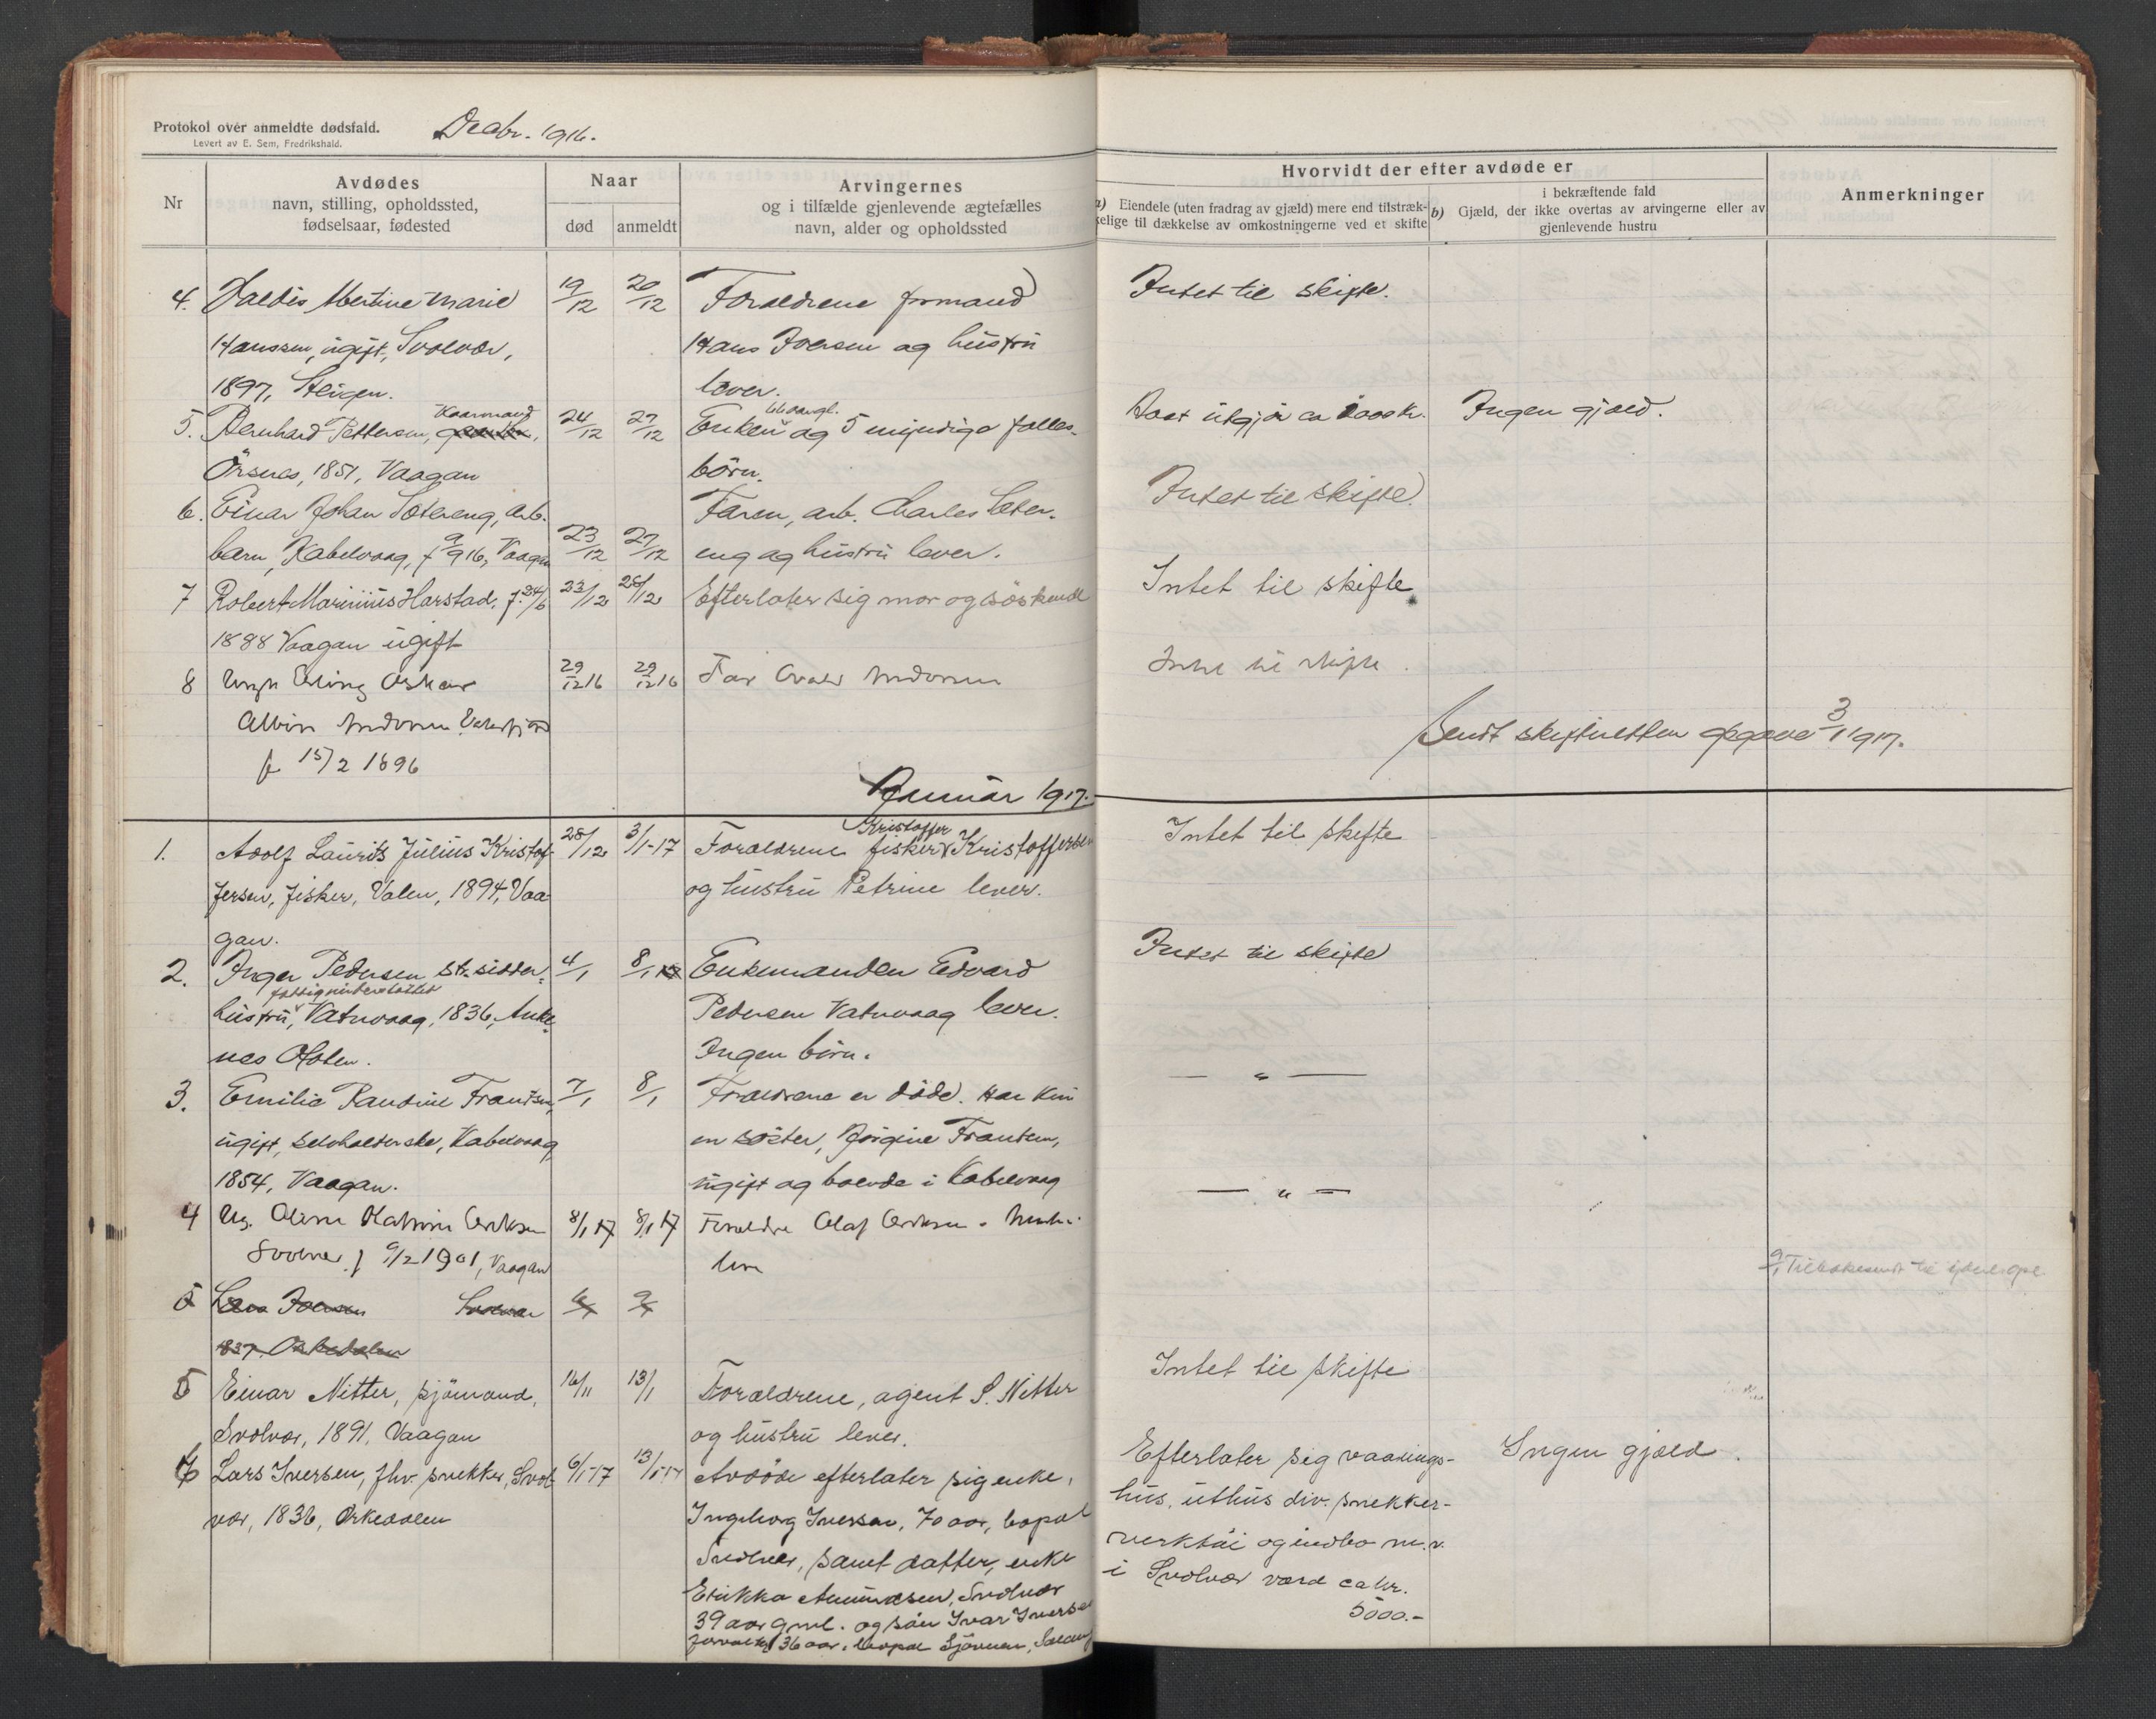 Protokol over anmeldte dødsfald.
Levert av E. Sem, Fredrikshald.
Decbr. 1916.
Nr
Avdødes
navn, stilling, opholdssted,
fødselsaar, fødested
Naar
død
anmeldt
Arvingernes
og i tilfælde gjenlevende ægtefælles
navn, alder og opholdssted
Hvorvidt der efter avdøde er
a) Eiendele (uten fradrag av gjæld) mere end tilstræk-
kelige til dækkelse av omkostningerne ved et skifte
i bekræftende fald
b) Gjæld, der ikke overtas av arvingerne eller av
gjenlevende hustru
Anmerkninger
4. Valdis Albertine Marie 19/12 20/12 Forældrene formand Intet til skifte.
Hanssen, ugift, Svolvær, Hans Iversen og hustru
1897, Steigen. lever.
5. Bernhard Pettersen, kaarmand 24/12 27/12 Enken 66 aar gl. og 5 myndige fælles- Boet utgjør ca 1000 kr. Ingen gjæld.
Örsnes, 1851, Vaagan börn.
6. Einar Johan Sætereng, arb. Faren, arb. Charles Sæter- Intet til skifte
barn, Kabelvaag, f 9/9 16, Vaagan 23/12 27/12 eng og hustru lever.
7 Robert Marinius Harstad, f. 24/6 23/12 28/12 Efterlater sig mor og søskende Intet til skifte
1888 Vaagan ugift
8 Ungk Erling Oskar 29/12 16 29/12 16 Far Intet til skifte.
Albin
f 15/2 1896
Sendt skifteretten opgave 3/1 1917.
Januar 1917.
1. Adolf Laurits Julius Kristof- 28/12 3/1-17 Forældrene fisker Kristoffer Kristoffersen Intet til skifte
fersen, fisker, Valen, 1894, Vaa- og hustru Petrine lever.
gan.
2. Inger Pedersen str.sidder- 4/1 8/1 17 Enkemanden Edvard Intet til skifte
hustru, fattigunderstøttet Vatnvaag, 1836, Anke- Pedersen Vatnvaag lever.
nes Ofoten. Ingen börn.
3. Emilie Pauline Frantsen, 7/1 8/1 Forældrene er døde. Har kun — " —
ugift, selvholderske, Kabelvaag en søster, Jörgine Frantsen,
1854, Vaagan. ugift og boende i Kabelvaag
4 Ug. Katrine Eriksen 8/1 17 8/1 17 Forældre Olaf Eriksen o. hustru — " —
Svolvær f 9/2 1901, Vaagan leve
9/1 Tilbakesendt til
5 Lars Iversen Svolvær 6/1 9/1
1837, Orkedalen
5 Einar Nitter, sjömand, 16/11 13/1 Forældrene, agent S. Nitter Intet til skifte
Svolvær, 1891, Vaagan og hustru lever.
6 Lars Iversen, fhv. snekker, Svol- 6/1-17 13/1-17 Avdøde efterlater sig enke, Efterlater sig vaanings- Ingen gjæld.
vær, 1836, Orkedalen Ingeborg Iversen, 70 aar, bopæl hus, uthus div. snekker-
Svolvær, samt datter, enke verktöi og indbo m.v.
Erikka Amundsen, Svolvær i Svolvær værd ca kr.
39 aar gml. og søn Ivar Iversen 5000.-
36 aar, bopæl